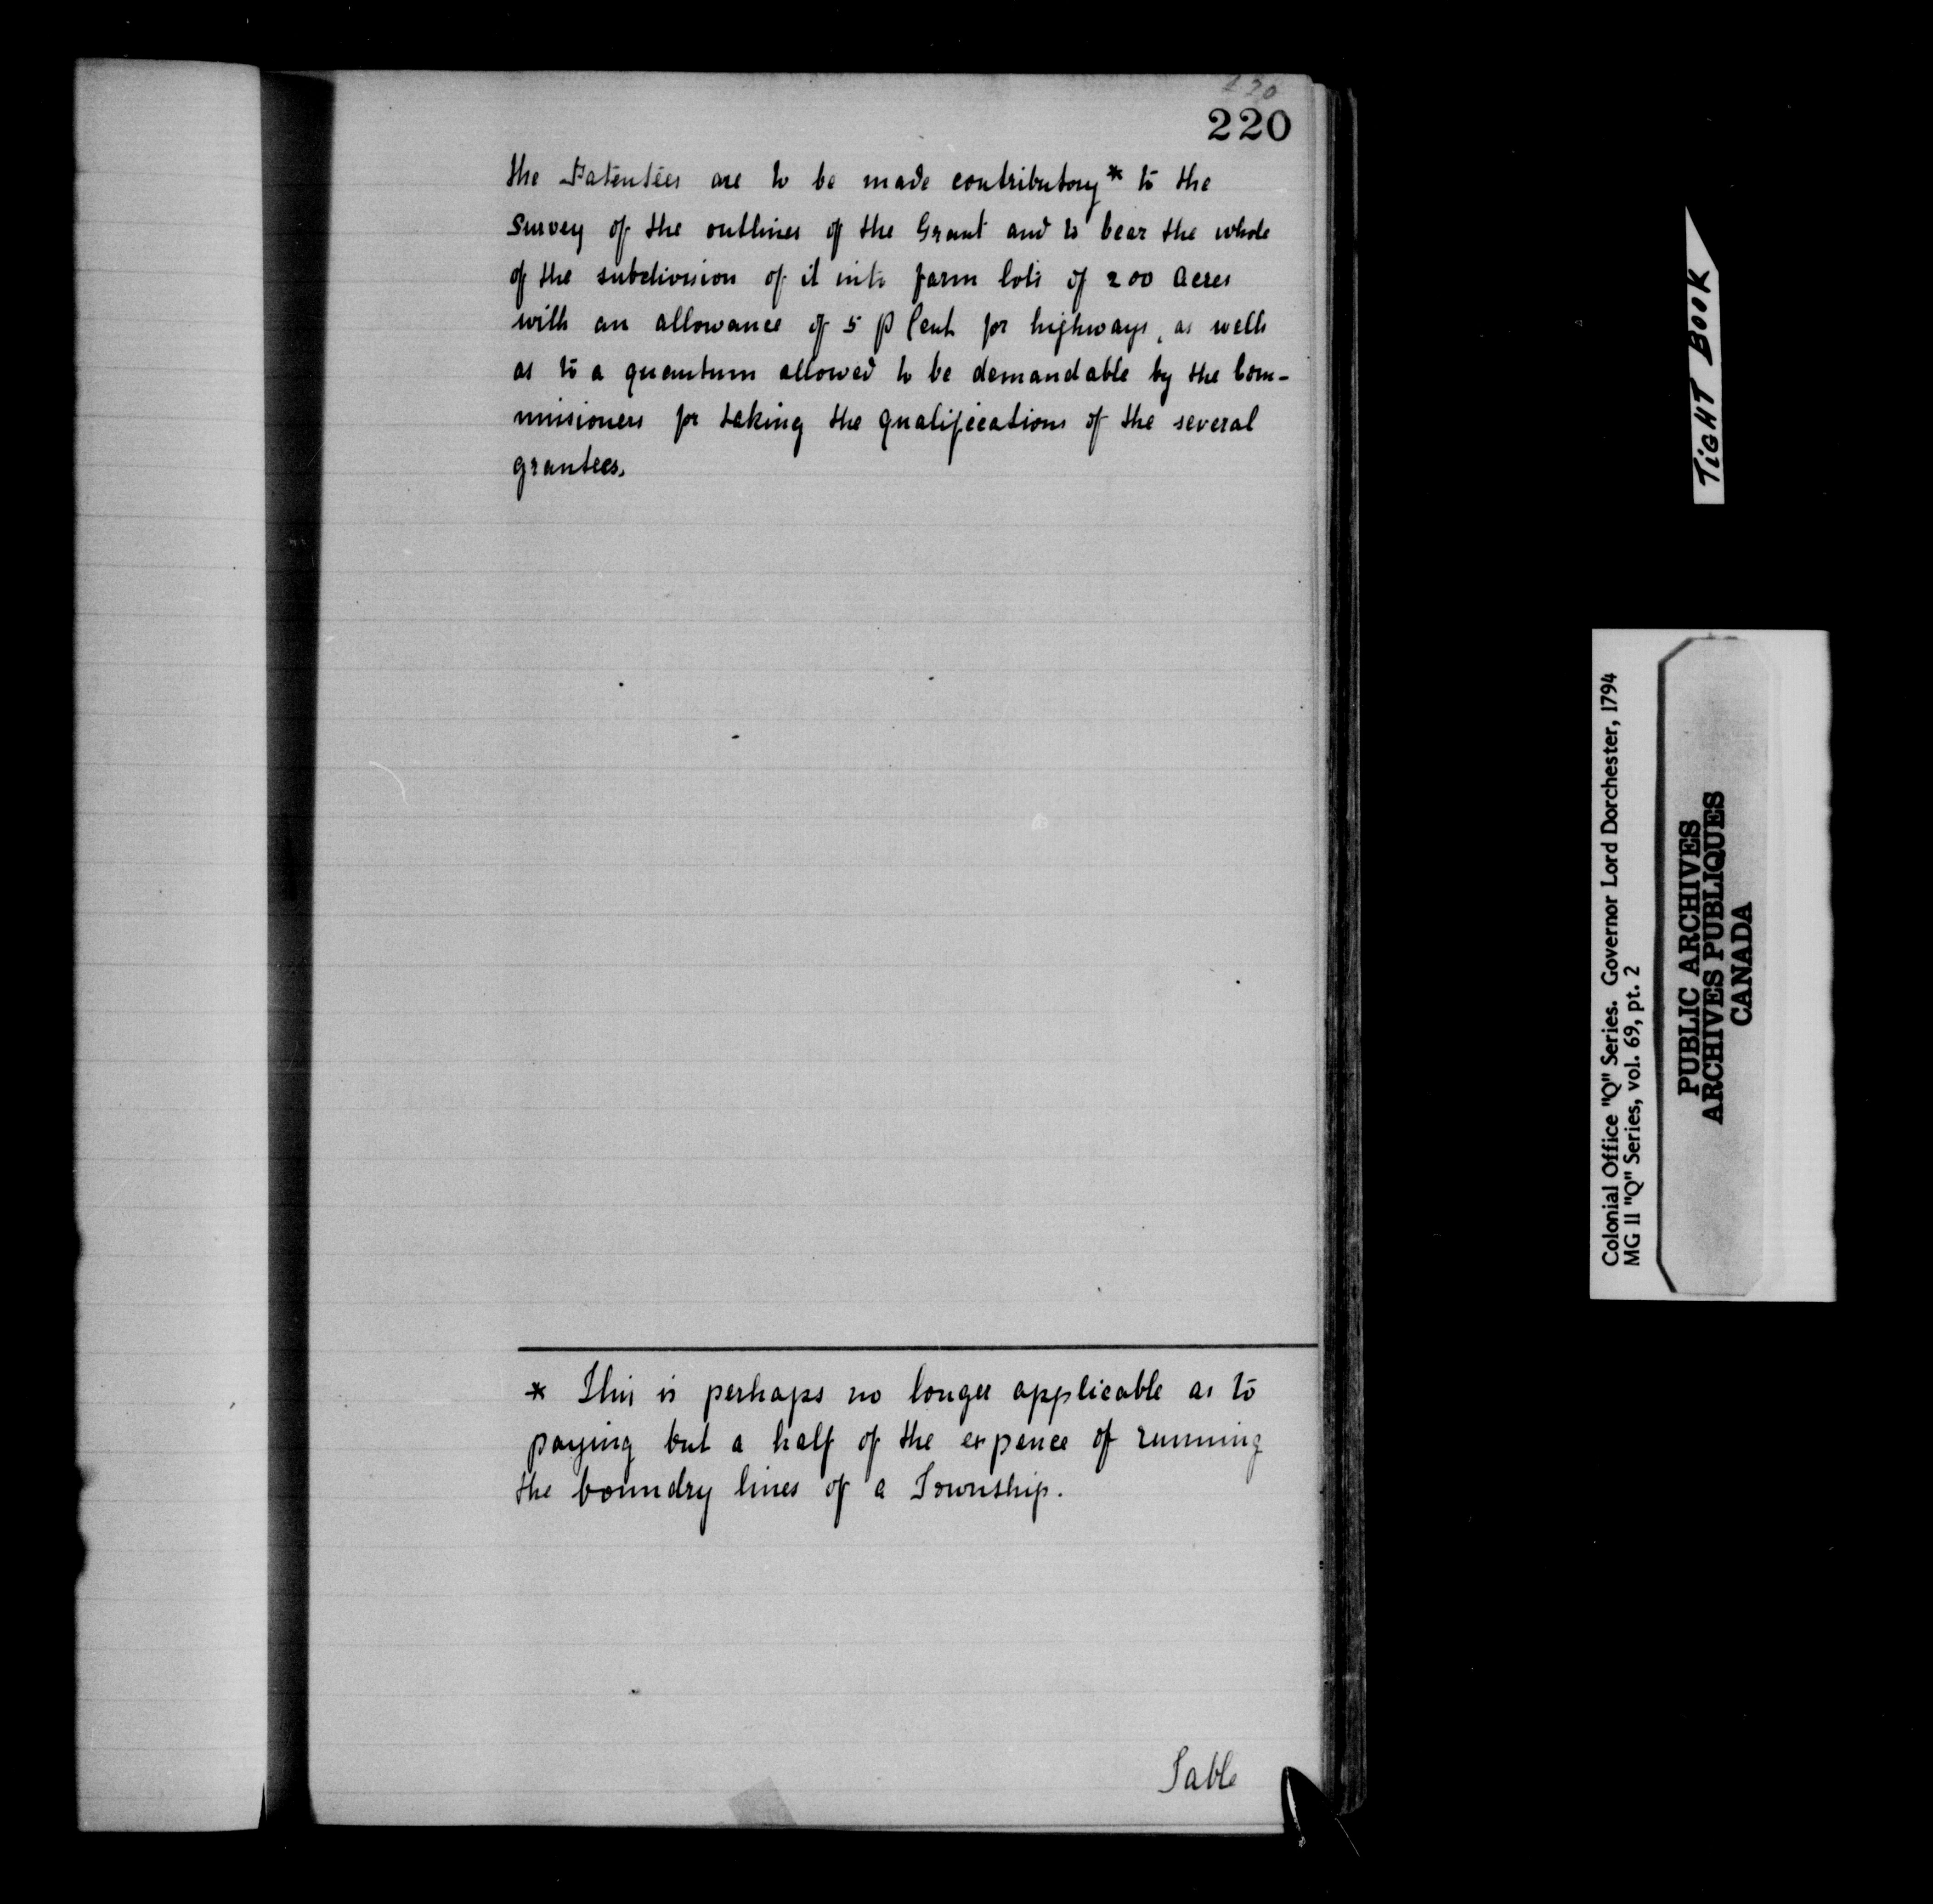 220
220
the Patentees are to be made contributory* to the
Survey of the outlines of the Grant and to bear the whole
of the subdivision of it into farm lots of 200 acres
with an allowance of 5 p Cent for highways, as well
as to a quantum allowed to be demandable by the Com-
misioners for taking the qualifications of the several
grantees.
* This is perhaps no longer applicable as to
paying but a half of the expence of running
the boundry lines of a Township.
Table
TIGHT BOOK
Colonial Office "Q" Series. Governor Lord Dorchester, 1794
MG 11 "Q" Series, vol. 69, pt. 2
PUBLIC ARCHIVES
ARCHIVES PUBLIQUES
CANADA